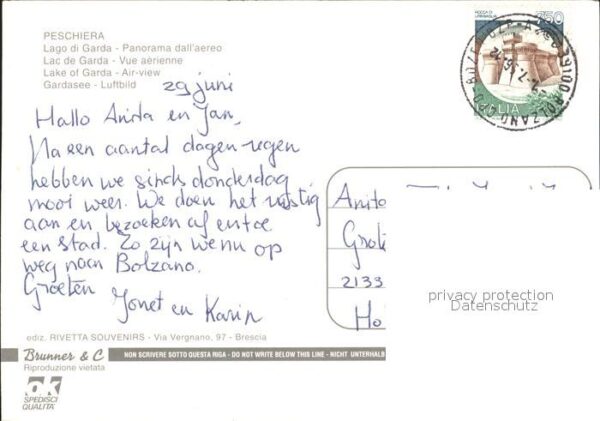 PESCHIERA
Lago di Garda - Panorama dall'aereo
Lac de Garda - Vue aérienne
Lake of Garda - Air-view
Gardasee - Luftbild
29 juni
Hallo Anita en Jan,
Na een aantal dagen regen
hebben we sinds donderdag
mooi weer. We doen het rustig
aan en bezoeken af en toe
een stad. Zo zijn we nu op
weg naar Bolzano.
Groeten
Jonet en Karin
ediz. RIVETTA SOUVENIRS - Via Vergnano, 97 - Brescia
Brunner & C
Riproduzione vietata
NON SCRIVERE SOTTO QUESTA RIGA - DO NOT WRITE BELOW THIS LINE - NICHT UNTERHALB
ok
SPEDISCI
QUALITÀ
750
ITALIA
39100 BOLZANO
BOZEN
Anita
2133
privacy protection
Datenschutz